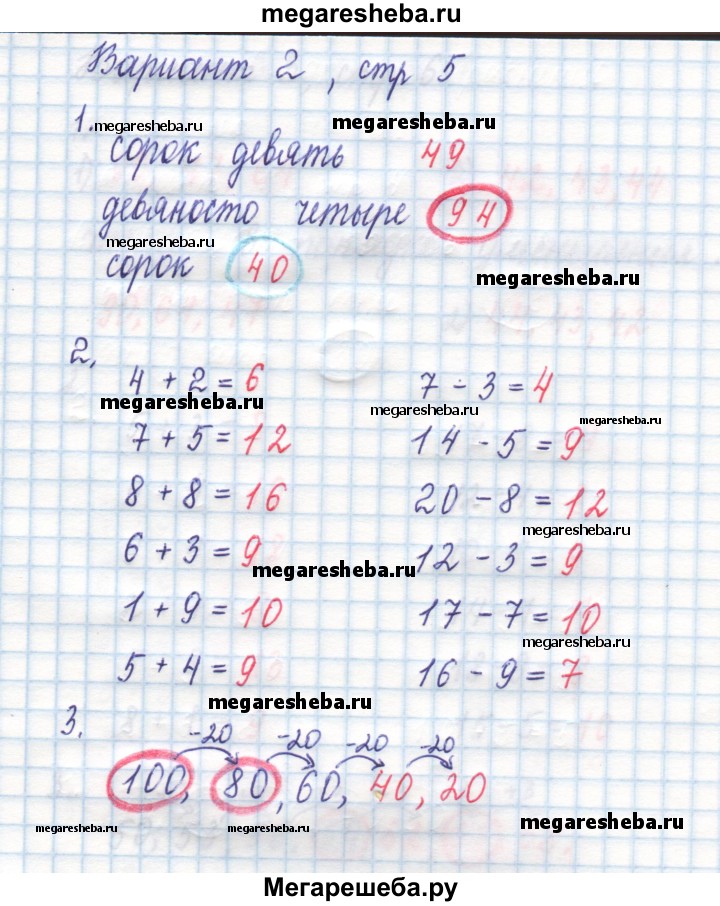 megaresheba.ru
Вариант 2, стр 5
1. megaresheba.ru megaresheba.ru
сорок девять 49
девяносто четыре 94
megaresheba.ru
сорок 40 megaresheba.ru
2,
4 + 2 = 6 7 - 3 = 4
megaresheba.ru megaresheba.ru megaresheba.ru
7 + 5 = 12 14 - 5 = 9
8 + 8 = 16 20 - 8 = 12
megaresheba.ru
6 + 3 = 9 12 - 3 = 9
megaresheba.ru
1 + 9 = 10 17 - 7 = 10
megaresheba.ru
5 + 4 = 9 16 - 9 = 7
megaresheba.ru
3.
-20 -20 -20 -20
100, 80, 60, 40, 20
megaresheba.ru megaresheba.ru megaresheba.ru
Мегарешеба.ру